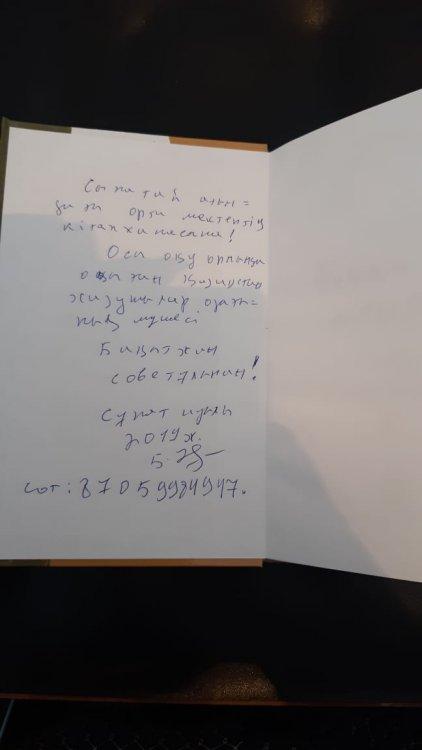 Сыпатай атын=
дағы орта мектептің
кітапханасына!
Осы оқу орнында
оқыған Қазақстан
жазушылар одағы=
ның мүшесі
Бақытжан
советұлынан!
Сұрат ауылы
2019ж.
сот: 87059984947.